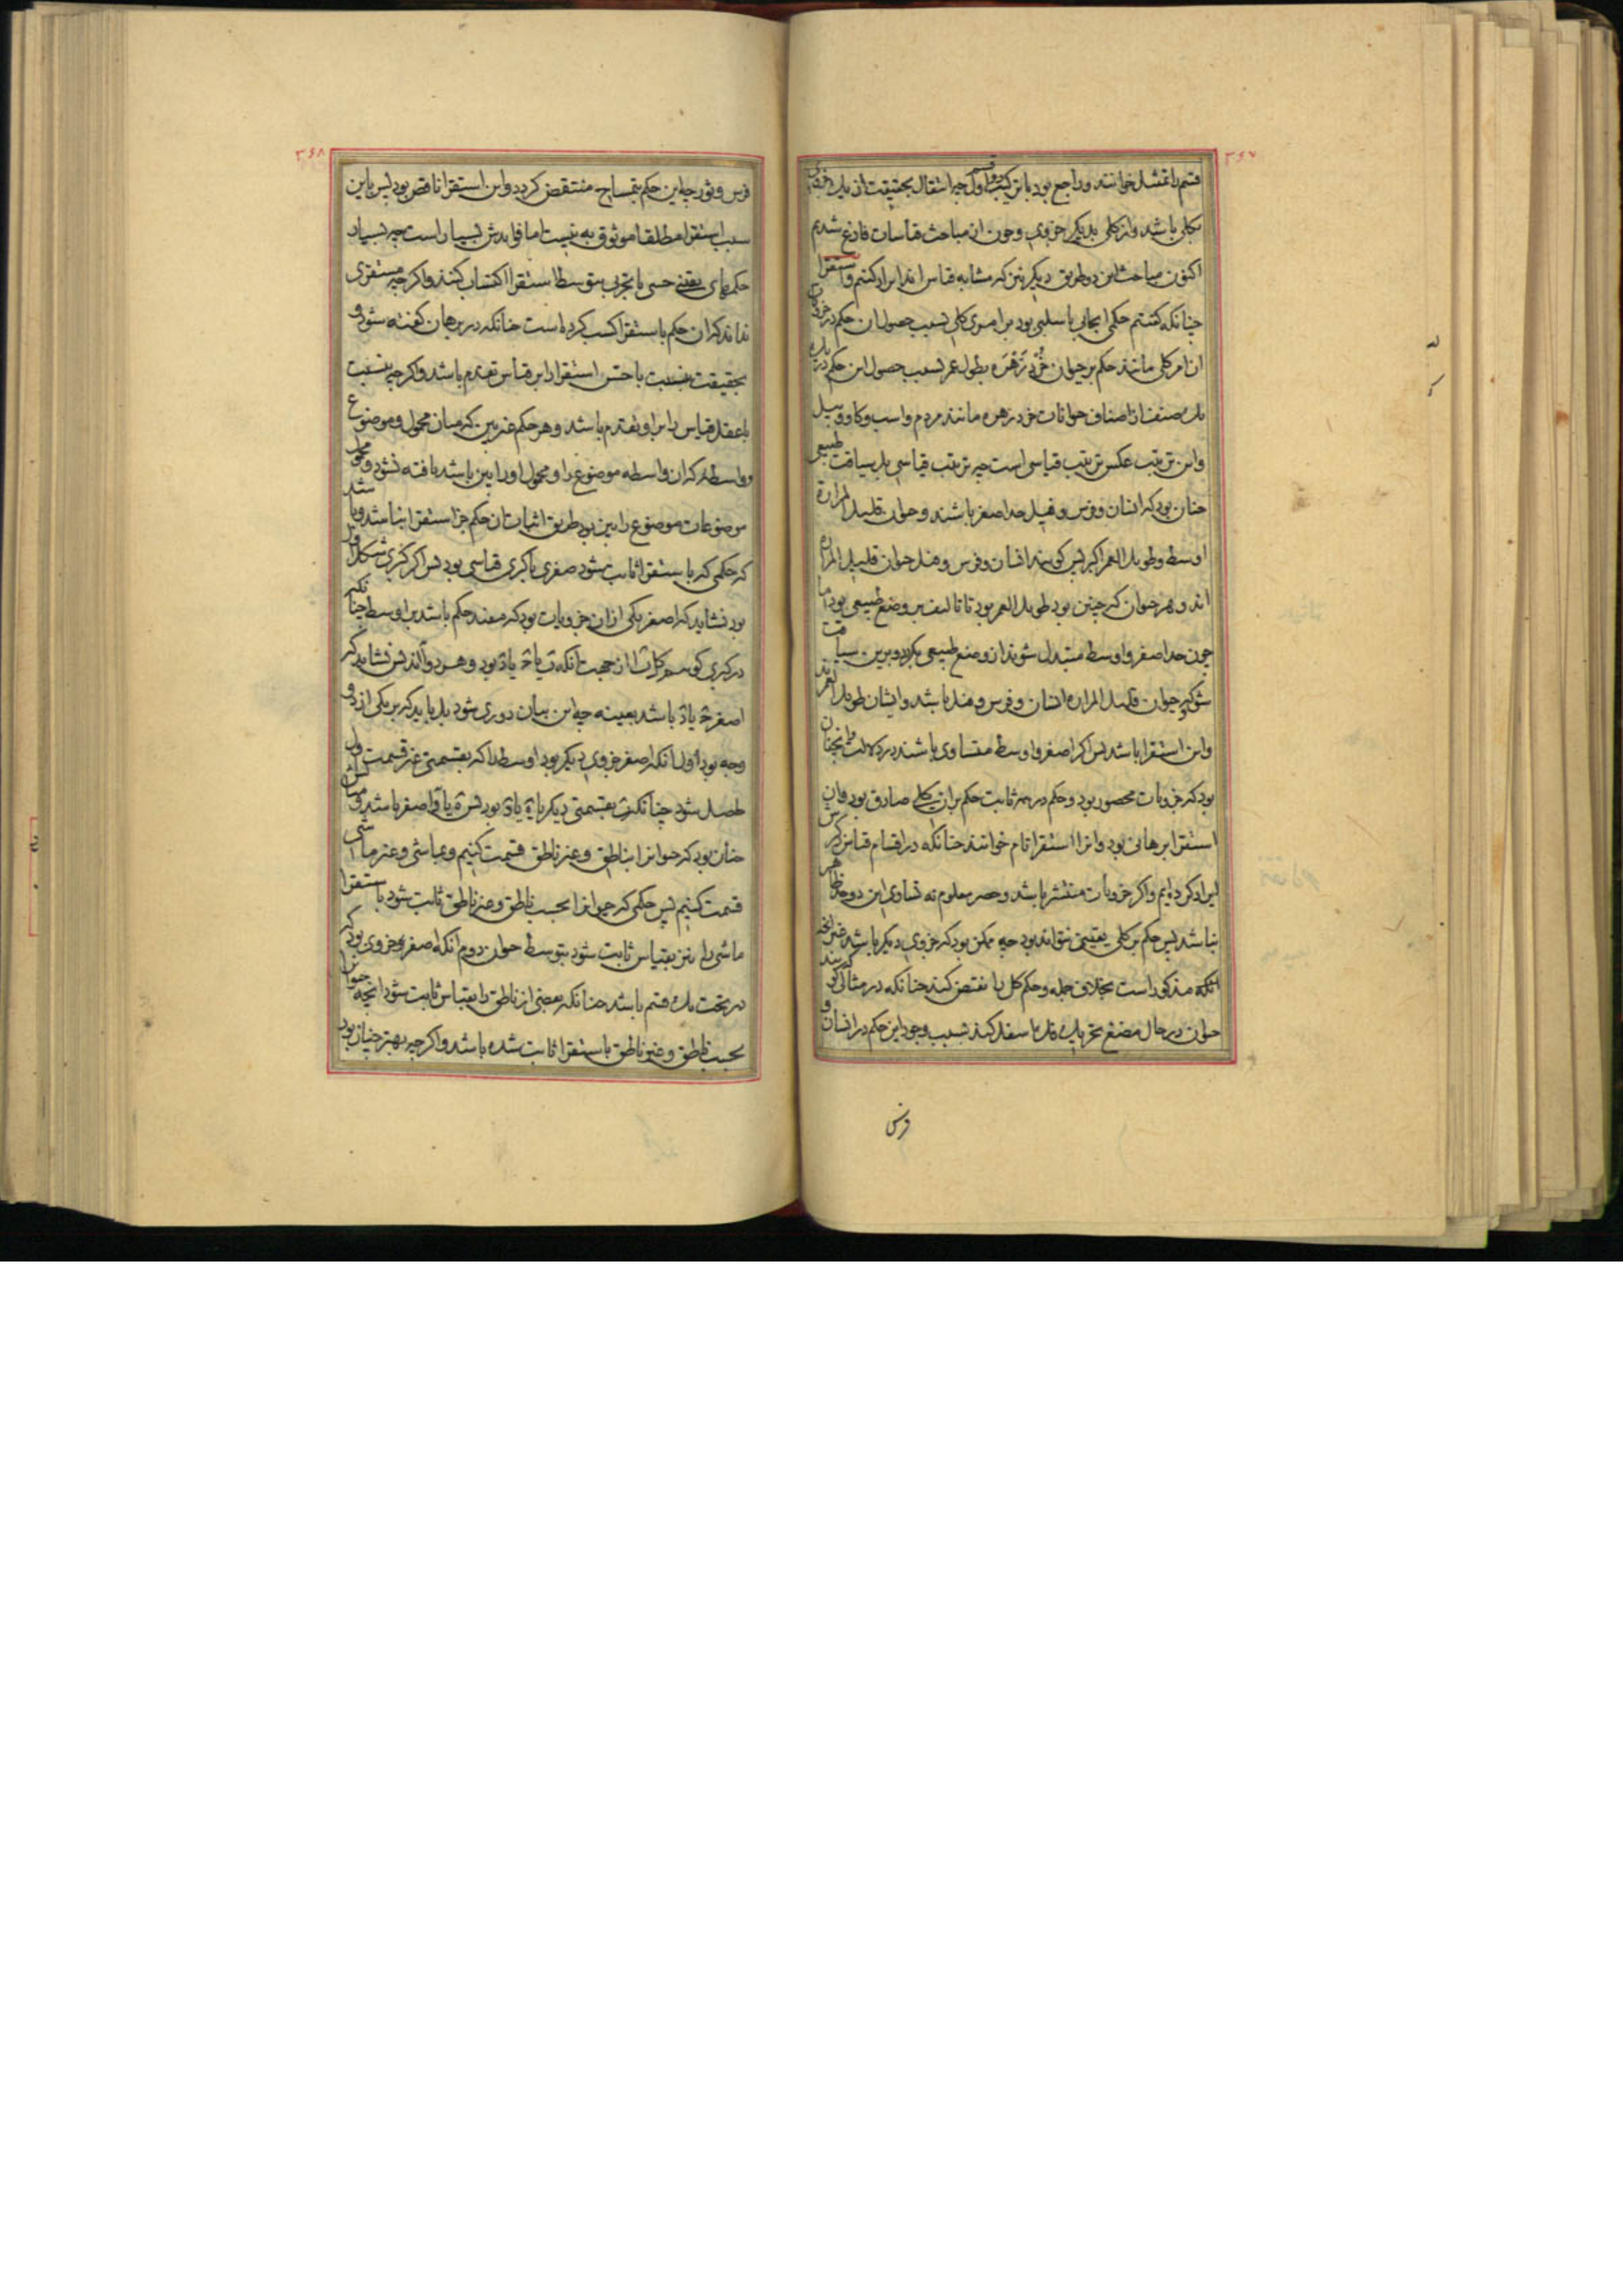 ۳۶۷
قسم را تمثیل خوانند و راجع بود با ترکیب دو قسم اول چه انتقال بحقیقت از یک جزوی
بکلی باشد و از کلی بدیگر جزوی و چون از مباحث قیاسات فارغ شدیم
اکنون مباحث این دو طریق دیگر نیز که مشابه قیاس اند ایراد کنیم و استقرا
چنانکه گفتیم حکمی ایجابی یا سلبی بود بر امری کلی بسبب حصول آن حکم در جزویات
آن امر کلی مانند حکم بر حیوان خرد زهره بطول عمر بسبب حصول این حکم در یک
یک صنف از اصناف حیوانات خرد زهره مانند مردم و اسب و کاو و پیل
و این ترتیب عکس ترتیب قیاسی است چه ترتیب قیاسی بر سیاقت طبیعی
چنان بود که انسان و فرس و فیل حد اصغر باشند و حیوان قلیل المرارة
اوسط و طویل العمر اکبر پس کویند انسان و فرس و فیل حیوان قلیل المراره
اند و هر حیوان که چنین بود طویل العمر بود تا تالیف بر وضع طبیعی بود اما
چون حد اصغر و اوسط متبدل شوند از وضع طبیعی بکردد و برین سیاقت
شود که حیوان قلیل المراره انسان و فرس و فیل باشد و ایشان طویل العمرند
و این استقرا باشد پس اکر اصغر و اوسط متساوی باشند در دلالت همچنان
بود که جزویات محصور بود و حکم در همه ثابت حکم بر آن کلی صادق بود و آن
استقرا برهانی بود و انرا استقرا تام خوانند چنانکه در اقسام قیاس ذکرش
ایراد کرده ایم و اکر جزویات منتشر باشد و حصر معلوم نه تساوی این دو حد ظاهر
نباشد پس حکم بر کلی یقینی نتواند بود چه ممکن بود که جزوی دیکر باشد غیر انچه
انکه مذکور است بخلاف جمله و حکم کل را نقض کند چنانکه در مثال کویند که
حیوان در حال مضغ تحریک فک اسفل کند بسبب وجود این حکم در انسان و
فرس
۳۶۸
فرس و ثور چه این حکم بتمساح منتقض کردد و این استقرا ناقص بود پس باین
سبب استقرا مطلقا موثوق به نیست اما فایدش بسیار است چه بسیار
حکمهای یقینی حسی یا تجربی بتوسط استقرا اکتساب کنند و اکر چه مستقری
نداند که آن حکم باستقرا کسب کرده است چنانکه در برهان کفته شود و
بحقیقت بنسبت با حس استقرا را بر قیاس تقدم باشد و اکر چه بنسبت
با عقل قیاس را بر او تقدم باشد و هر حکم غیر بین که میان محمول و موضوع
و واسطه که آن واسطه موضوع را و محمول او را بین باشد یافته نشود و محمول
موضوعات موضوع را بین بود طریق اثبات آن حکم جز استقرا نباشد و باشد
که حکمی که باستقرا ثابت شود صغری یا کبری قیاسی بود پس اکر کبری شکل اول
بود نشاید که اصغر یکی از آن جزویات بود که مفید حکم باشد بر اوسط چنانکه
در کبری کویند هر ب ا از جهت انکه ب یا ج یا د بود و هر دو آاند پس نشاید که
اصغر ج یا د باشد بعینه چه این بیان دوری شود بل باید که بر یکی از دو
وجه بود اول انکه اصغر جزوی دیکر بود اوسط را که بقسمتی غیر قسمت اول
حاصل شود چنانکه ب بقسمتی دیکر یا ه یا و بود پس ه یا و اصغر باشد و مثالش
چنان بود که حیوانرا بناطق و غیر ناطق قسمت کنیم و بماشی و غیر ماشی
قسمت کنیم پس حکمی که حیوانرا بحسب ناطق و غیر ناطق ثابت شود باستقرا
ماشی را نیز بقیاس ثابت شود بتوسط حیوان دوم انکه اصغر جزوی بود که
در تحت یک قسم باشد چنانکه بعضی از ناطق را بقیاس ثابت شود انچه حیوانرا
بحسب ناطق و غیر ناطق باستقرا ثابت شده باشد و اکر چه بهتر چنان بود